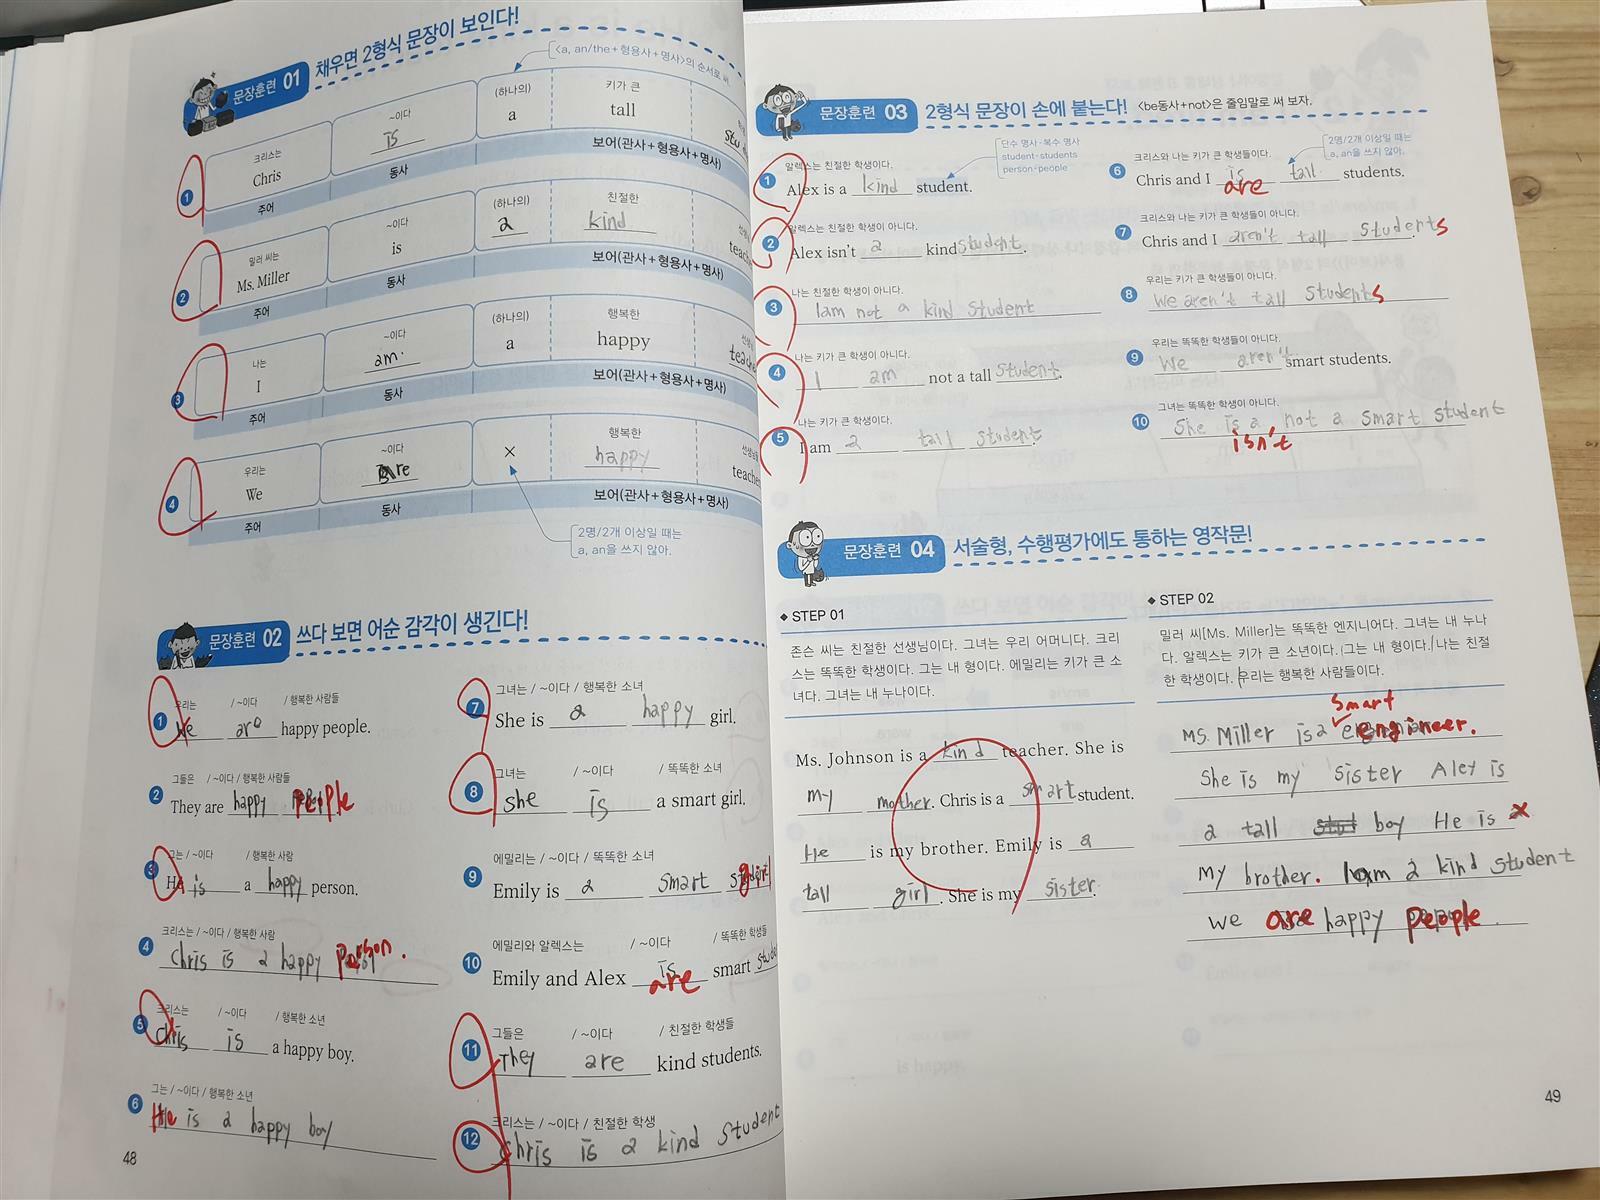 문장훈련 01 채우면 2형식 문장이 보인다!
<a, an/the+형용사+명사>의 순서로 써
크리스는 ~이다 (하나의) 키가 큰
1 Chris is a tall
주어 동사 보어(관사+형용사+명사)
밀러 씨는 ~이다 (하나의) 친절한
2 Ms. Miller is a kind
주어 동사 보어(관사+형용사+명사)
나는 ~이다 (하나의) 행복한
3 I am a happy
주어 동사 보어(관사+형용사+명사)
우리는 ~이다 행복한
4 We are × happy
주어 동사 보어(관사+형용사+명사)
2명/2개 이상일 때는
a, an을 쓰지 않아.
문장훈련 02 쓰다 보면 어순 감각이 생긴다!
우리는 / ~이다 / 행복한 사람들
1 We are happy people.
그들은 / ~이다 / 행복한 사람들
2 They are happy people
그는 / ~이다 / 행복한 사람
3 He is a happy person.
크리스는 / ~이다 / 행복한 사람
4 Chris is a happy person.
크리스는 / ~이다 / 행복한 소년
5 Chris is a happy boy.
그는 / ~이다 / 행복한 소년
6 He is a happy boy
그녀는 / ~이다 / 행복한 소녀
7 She is a happy girl.
그녀는 / ~이다 / 똑똑한 소녀
8 she is a smart girl.
에밀리는 / ~이다 / 똑똑한 소녀
9 Emily is a smart girl
에밀리와 알렉스는 / ~이다 / 똑똑한 학생들
10 Emily and Alex is are smart
그들은 / ~이다 / 친절한 학생들
11 They are kind students.
크리스는 / ~이다 / 친절한 학생
12 Chris is a kind student
48
문장훈련 03 2형식 문장이 손에 붙는다! <be동사+not>은 줄임말로 써 보자.
단수 명사-복수 명사
student-students
person-people
알렉스는 친절한 학생이다.
1 Alex is a kind student.
알렉스는 친절한 학생이 아니다.
2 Alex isn't a kind student.
나는 친절한 학생이 아니다.
3 I am not a kind student
나는 키가 큰 학생이 아니다.
4 I am not a tall student.
나는 키가 큰 학생이다.
5 I am a tall student.
2명/2개 이상일 때는
a, an을 쓰지 않아.
크리스와 나는 키가 큰 학생들이다.
6 Chris and I is are tall students.
크리스와 나는 키가 큰 학생들이 아니다.
7 Chris and I aren't tall students.
우리는 키가 큰 학생들이 아니다.
8 We aren't tall students
우리는 똑똑한 학생들이 아니다.
9 We aren't smart students.
그녀는 똑똑한 학생이 아니다.
10 She is a not a smart student
isn't
문장훈련 04 서술형, 수행평가에도 통하는 영작문!
◆ STEP 01
존슨 씨는 친절한 선생님이다. 그녀는 우리 어머니다. 크리
스는 똑똑한 학생이다. 그는 내 형이다. 에밀리는 키가 큰 소
녀다. 그녀는 내 누나이다.
Ms. Johnson is a kind teacher. She is
my mother. Chris is a smart student.
He is my brother. Emily is a
tall girl. She is my sister.
◆ STEP 02
밀러 씨[Ms. Miller]는 똑똑한 엔지니어다. 그녀는 내 누나
다. 알렉스는 키가 큰 소년이다. 그는 내 형이다. 나는 친절
한 학생이다. 우리는 행복한 사람들이다.
smart
Ms. Miller is a engineer.
She is my sister Alex is
a tall boy He is
my brother. I am a kind student
we are happy people.
49